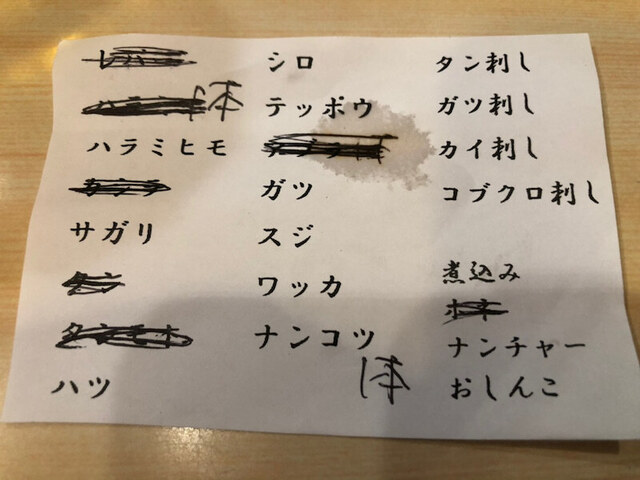 1本
ハラミヒモ
サガリ
ハツ
シロ
テッポウ
ガツ
スジ
ワッカ
ナンコツ
1本
タン刺し
ガツ刺し
カイ刺し
コブクロ刺し
煮込み
ナンチャー
おしんこ